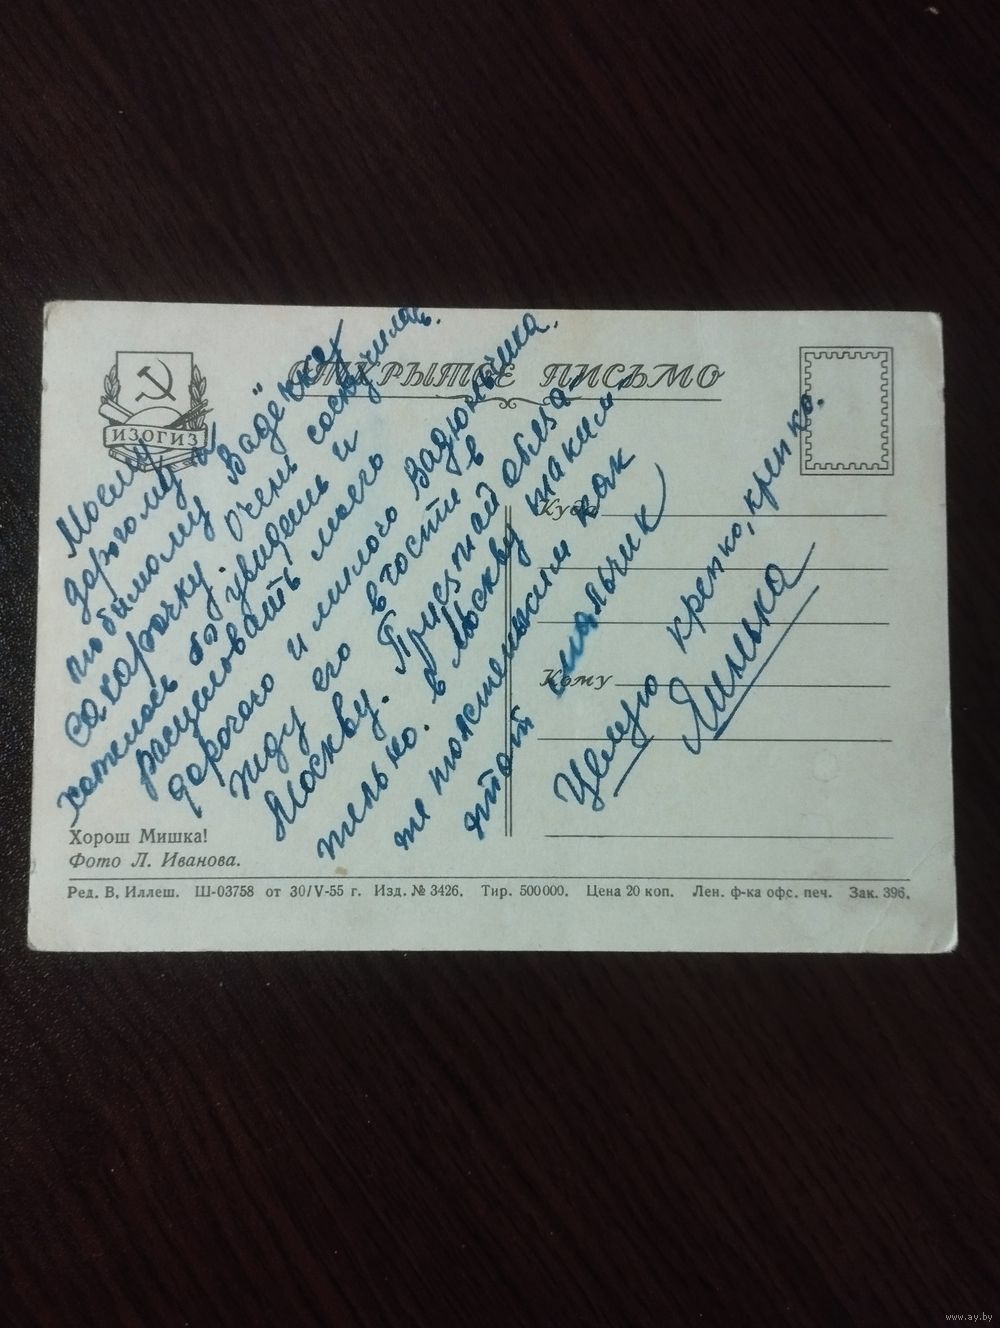 ИЗОГИЗ
ОТКРЫТОЕ ПИСЬМО
Моему
дорогому и
любимому Вадёчке
сахарочку. Очень соскучилась.
хотелось бы увидеть и
расцеловать моего
дорогого и милого Вадюнчика.
Жду его в гости в
Москву. Приезжай обяза-
тельно. в Москву таким
же толстеньким как
этот мальчик
Целую крепко, крепко.
Яшлька
Куда
Кому
Хорош Мишка!
Фото Л. Иванова.
Ред. В. Иллеш. Ш-03758 от 30/V-55 г. Изд. № 3426. Тир. 500000. Цена 20 коп. Лен. ф-ка офс. печ. Зак. 396.
www.ay.by